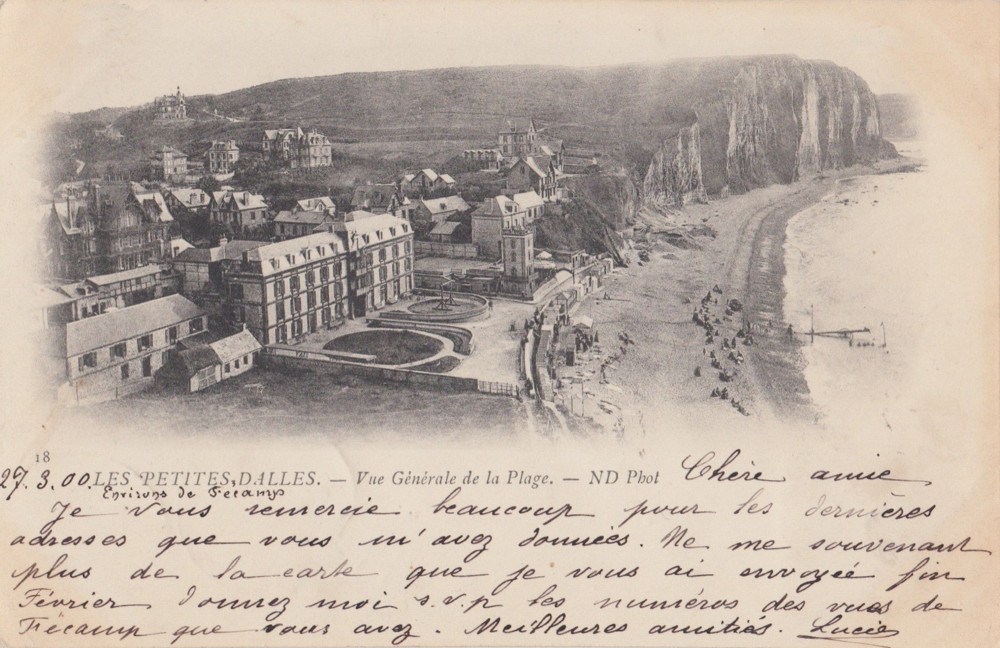 18
27.3.00. LES PETITES DALLES. — Vue Générale de la Plage. — ND Phot Chère amie
Environs de Fecamp
Je vous remercie beaucoup pour les dernières
adresses que vous m'avez données. Ne me souvenant
plus de la carte que je vous ai envoyée fin
Février donnez moi s.v.p les numéros des vues de
Fécamp que vous avez. Meilleures amitiés. Lucie